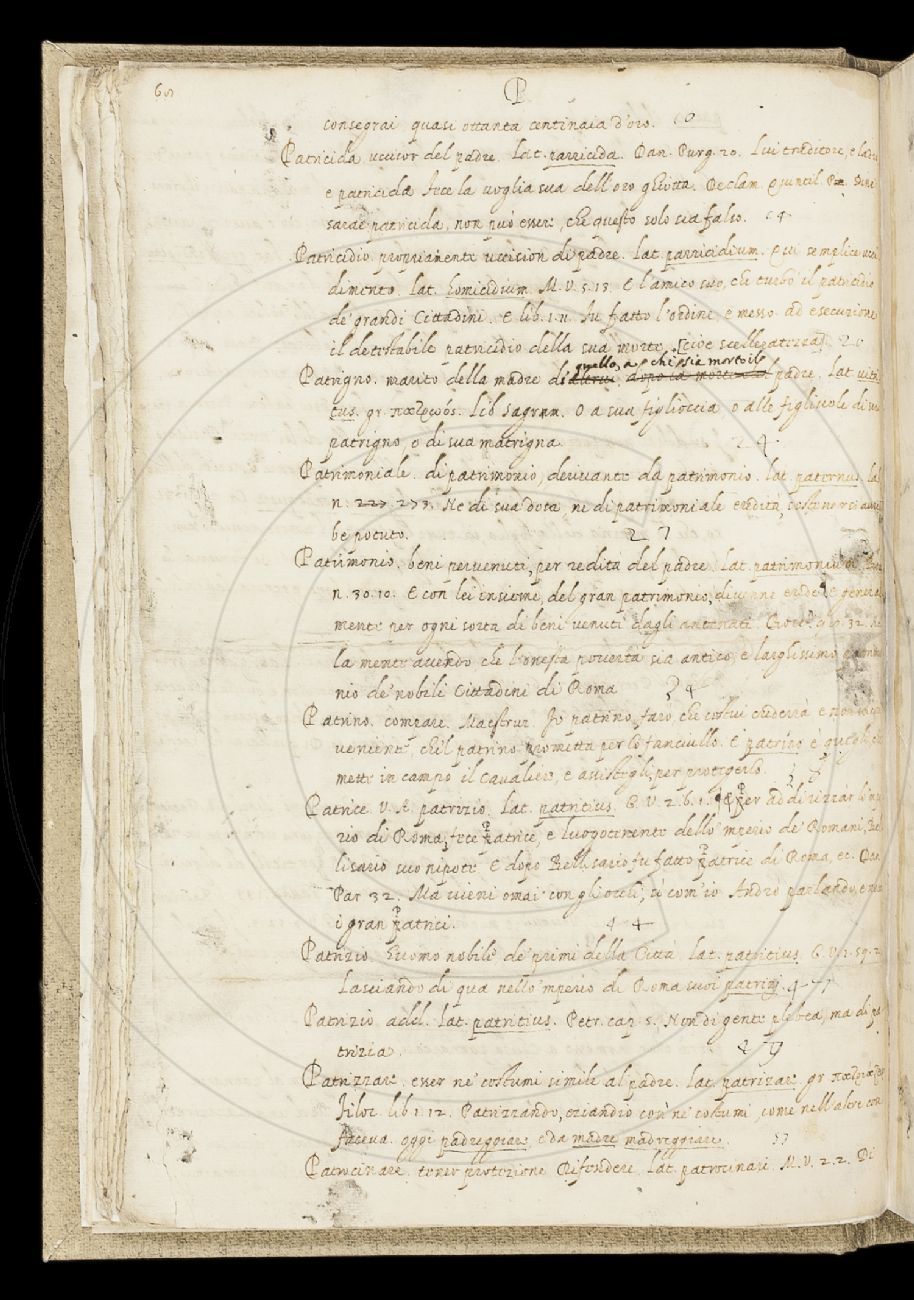 60
P
consegrai quasi ottanta centinaia d'oro. 60
Patricida uccisor del padre. Lat. parricida. Dan. Purg. 20. Lui traditore, e ladro
e patricida fece la voglia sua dell'oro ghiotta. Declam. Quintil. P.
sarae patricida, non può esser, che questo solo sia falso. 14
Patricidio propriamente uccision di padre. Lat. parricidium. e semplice ucci
dimento. Lat. homicidium. M. V. 5. 13. E l'amico suo, che turbò il patricidio
de' grandi Cittadini. E lib. 1. 11. fu fatto l'ordine, e messo ad esecuzione
il detestabile patricidio della sua morte [cioè scelleratezza] 20
quello, a chi sia morto il
Patrigno. marito della madre di altrui, dopo la morte del padre. Lat. vitri
cus. gr. πατρωός. Lib. Sagram. O a sua figlioccia, o alle figliuole di suo
patrigno, o di sua matrigna. 24
Patrimoniale. di patrimonio, derivante da patrimonio. lat. paternus. la
n. 227. 273. Ne di sua dota, ne di patrimoniale eredità, costui
be potuto. 27
Patrimonio. beni pervenuti, per redità del padre. Lat. patrimonium.
n. 30. 10. E con lei insieme, del gran patrimonio, divenne erede. E general
mente per ogni sorta di beni venuti dagli antenati. 32.
la mente avendo che l'onesta povertà sia antico, e larghissimo patrimo
nio de' nobili Cittadini di Roma 34
Patrino. compare. Maestruz. Io patrino farò, che costui crederrà, e
veniente, che'l patrino prometta per lo fanciullo. E patrino è quegli, che
mette in campo il Cavaliere, e assistegli, per proteggerlo.
Patrice. V. A. patrizio. Lat. patritius. G. V. 2. 6. 1. Per addirizzar lo'mpe
rio di Roma, fece Patrice, e luogotenente dello 'mperio de' Romani, Bel
lisario suo nipote. E dopo Bellisario fu fatto Patrice di Roma, ec. Dan.
Par. 32. Ma vieni omai con gli occhi, sì com'io Andrò parlando, e nota
i gran Patrici. 44
Patrizio. Huomo nobile de' primi della Città. Lat. patritius. G. V. 1. 59. 2.
Lasciando di qua nello 'mperio di Roma suoi patrizj. 47
Patrizio add. Lat. patritius. Petr. cap. 5. Non di gente plebea, ma di pa
trizia. 49
Patrizzare, esser ne' costumi simile al padre. Lat. patrizare. gr.
Filoc. lib. 1. 12. Patrizzando, eziandio così ne' costumi, come nell'altre cose
faceva. oggi padreggiare, e da madre madreggiare. 53
Patrocinare. tener protezione. Difendere. Lat. patrocinari. M. V. 2. 2. Di